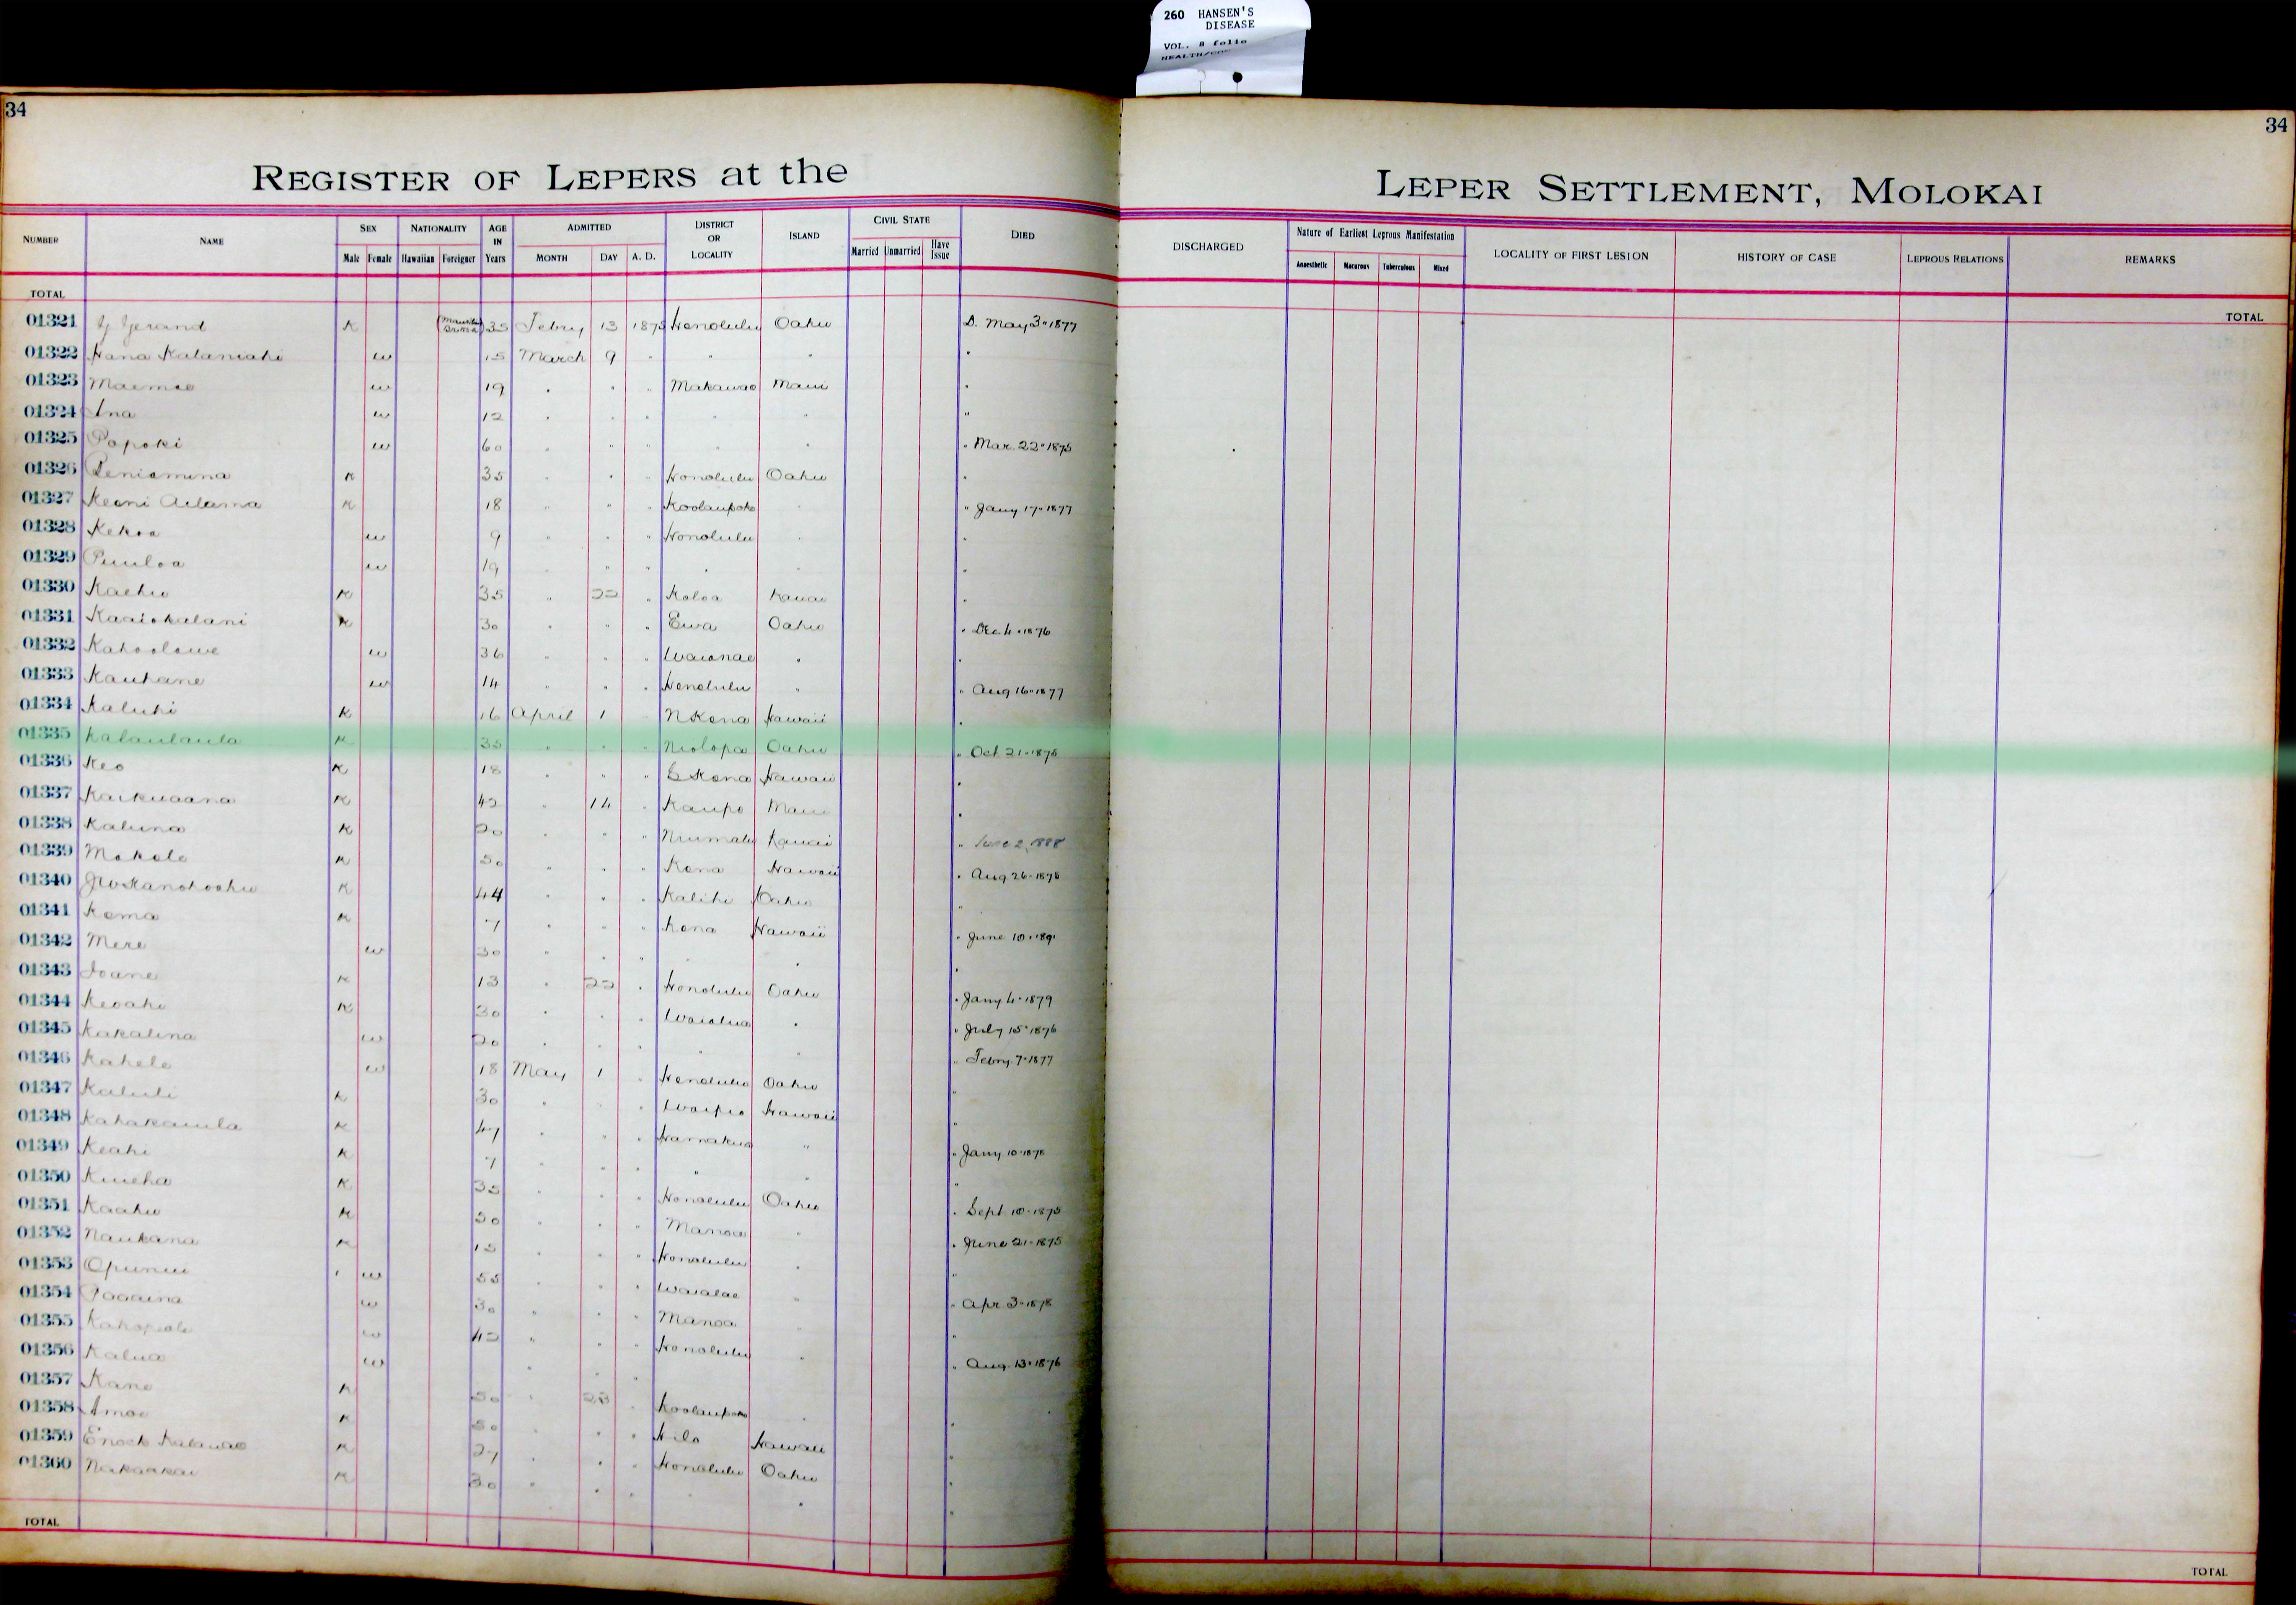 260 HANSEN'S
DISEASE
VOL. 8 folio
34
34
REGISTER OF LEPERS at the
LEPER SETTLEMENT, MOLOKAI
NUMBER NAME SEX Male Female NATIONALITY Hawaiian Foreigner AGE IN Years ADMITTED MONTH DAY A. D. DISTRICT OR LOCALITY ISLAND CIVIL STATE Married Unmarried Have Issue DIED
DISCHARGED Nature of Earliest Leprous Manifestation Anaesthetic Macurous Tuberculous Mixed LOCALITY OF FIRST LESION HISTORY OF CASE LEPROUS RELATIONS REMARKS
TOTAL
TOTAL
01321 K 35 Febry 13 1875 Honolulu Oahu D. May 3" 1877
01322 Hana w 15 March 9 " " " "
01323 Maemae w 19 " " " Makawao Maui "
01324 Ina w 12 " " " " " "
01325 Popoki w 60 " " " " " " Mar. 22" 1875
01326 Peniamina K 35 " " " Honolulu Oahu "
01327 Keoni Ailama K 18 " " " Koolaupoko " " Jany 17" 1877
01328 Kekoa w 9 " " " Honolulu " "
01329 Puuloa w 19 " " " " " "
01330 Kaehu K 35 " 22 " Koloa Kauai "
01331 Kaaiokalani K 30 " " " Ewa Oahu " Dec 4" 1876
01332 Kahoolawe w 36 " " " Waianae " "
01333 Kauhane w 14 " " " Honolulu " " Aug 16" 1877
01334 Kaluhi K 16 April 1 " N Kona Hawaii "
01335 Kalaulaula K 35 " " " Niolopa Oahu " Oct 21" 1875
01336 Keo K 18 " " " Kona Hawaii "
01337 Kaikuaana K 42 " 14 " Kaupo Maui "
01338 Kaluna K 20 " " " Niumalu Kauai " June 2, 1888
01339 Makole K 50 " " " Kona Hawaii " Aug 26" 1878
01340 K 44 " " " Kalihi Oahu "
01341 Kema K 7 " " " Kona Hawaii " June 10" 1891
01342 Mere w 30 " " " " " "
01343 Ioane K 13 " 22 " Honolulu Oahu " Jany 4" 1879
01344 Keoahi K 30 " " " Waialua " " July 15" 1876
01345 Kakalina w 20 " " " " " " Febry. 7" 1877
01346 Kahele w 18 May 1 " Honolulu Oahu "
01347 Kaluli K 30 " " " Waipio Hawaii "
01348 Kahakauila K 47 " " " Hamakua " " Jany 10" 1878
01349 Keahi K 7 " " " " " "
01350 Kuieha K 35 " " " Honolulu Oahu " Sept 10" 1875
01351 Kaahu K 50 " " " Manoa " " June 21" 1875
01352 Naukana K 15 " " " Honolulu " "
01353 Opunui w 55 " " " Waialae " " Apr 3" 1878
01354 w 30 " " " Manoa " "
01355 w 42 " " " Honolulu " " Aug. 13" 1876
01356 Kalua w
01357 Kane K 50 " 28 " Koolaupoko " "
01358 Amoe K 50 " " " Hilo Hawaii "
01359 Enoch K 27 " " " Honolulu Oahu "
01360 Nakaakai K 30 " " " " " "
TOTAL
TOTAL